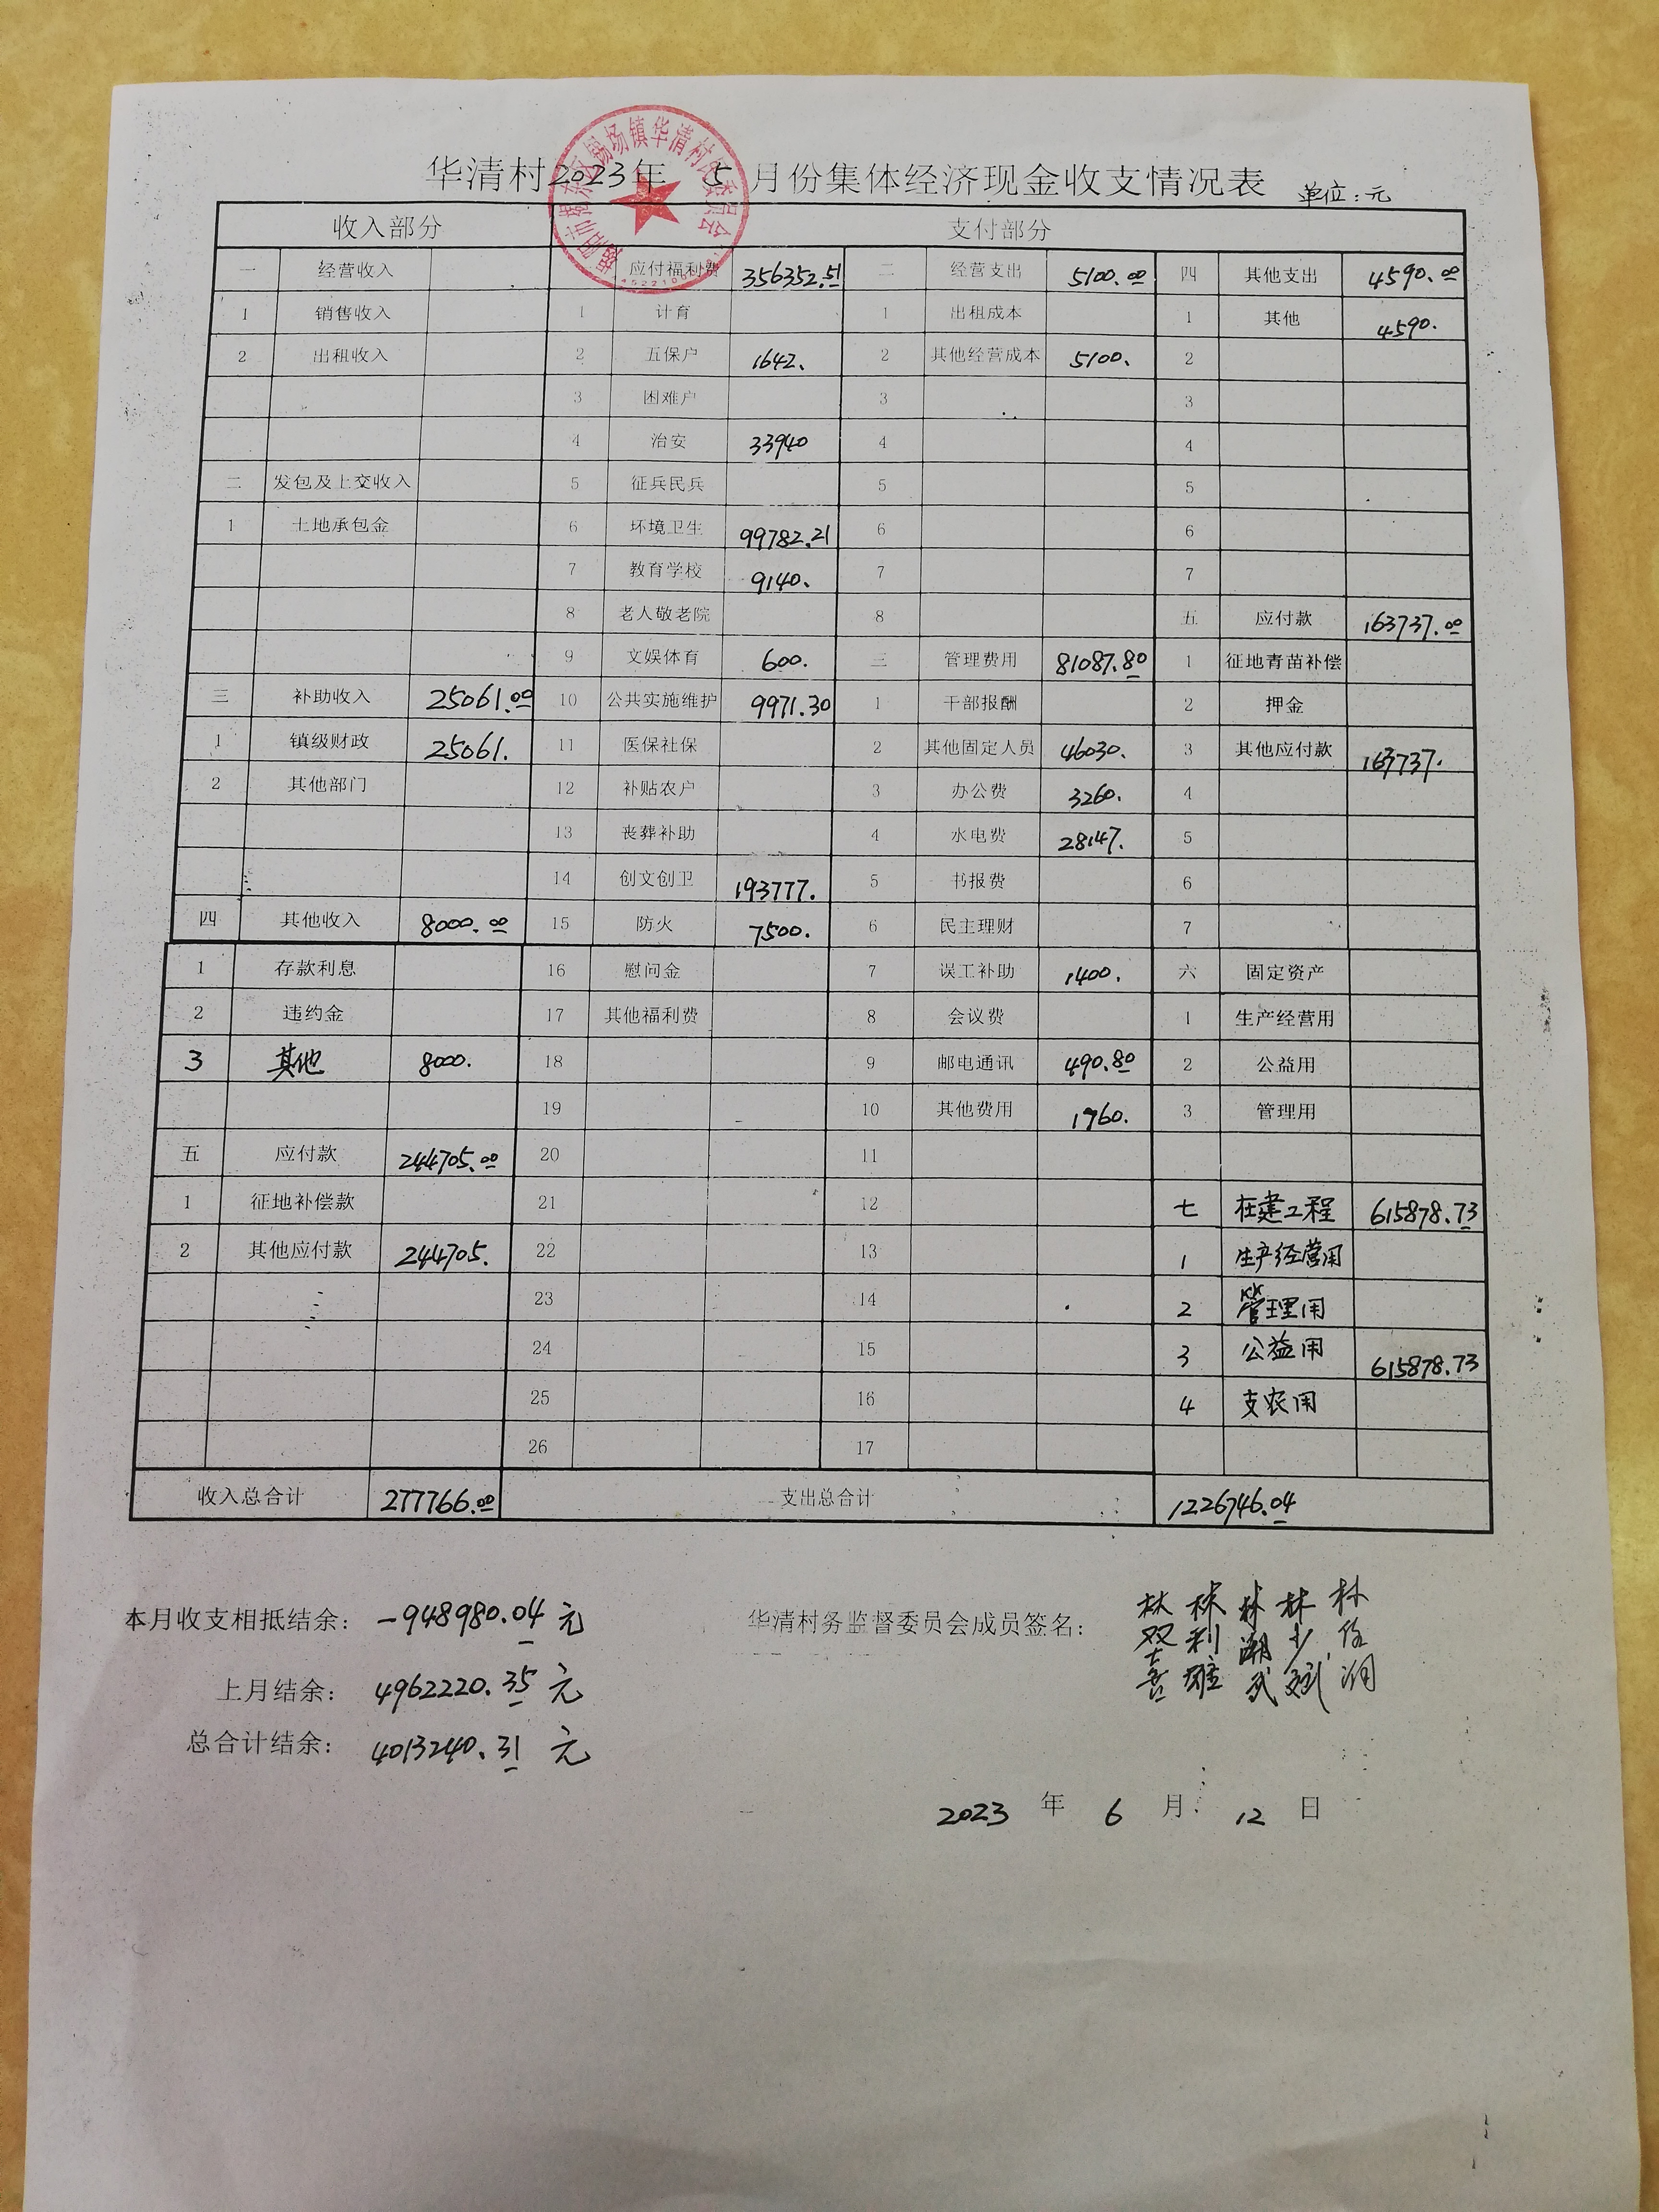 华清村2023年 5 月份集体经济现金收支情况表 单位:元
揭阳市揭东区锡场镇华清村民委员会
收入部分 支付部分
一 经营收入 应付福利费 356352.51 二 经营支出 5100.00 四 其他支出 4590.00
1 销售收入 1 计育 1 出租成本 1 其他 4590.
2 出租收入 2 五保户 1642. 2 其他经营成本 5100. 2
3 困难户 3 3
4 治安 33940 4 4
二 发包及上交收入 5 征兵民兵 5 5
1 土地承包金 6 环境卫生 99782.21 6 6
7 教育学校 9140. 7 7
8 老人敬老院 8 五 应付款 163737.00
9 文娱体育 600. 三 管理费用 81087.80 1 征地青苗补偿
三 补助收入 25061.00 10 公共实施维护 9971.30 1 干部报酬 2 押金
1 镇级财政 25061. 11 医保社保 2 其他固定人员 46030. 3 其他应付款 163737.
2 其他部门 12 补贴农户 3 办公费 3260. 4
13 丧葬补助 4 水电费 28147. 5
14 创文创卫 193777. 5 书报费 6
四 其他收入 8000.00 15 防火 7500. 6 民主理财 7
1 存款利息 16 慰问金 7 误工补助 1400. 六 固定资产
2 违约金 17 其他福利费 8 会议费 1 生产经营用
3 其他 8000. 18 9 邮电通讯 490.80 2 公益用
19 10 其他费用 1760. 3 管理用
五 应付款 244705.00 20 11
1 征地补偿款 21 12 七 在建工程 615878.73
2 其他应付款 244705. 22 13 1 生产经营用
23 14 2 管理用
24 15 3 公益用 615878.73
25 16 4 支农用
26 17
收入总合计 277766.00 支出总合计 1226746.04
本月收支相抵结余: -948980.04 元 华清村务监督委员会成员签名: 林双喜 林利雄 林潮武 林少斌 林
上月结余: 4962220.35 元
总合计结余: 4013240.31 元
2023 年 6 月 12 日